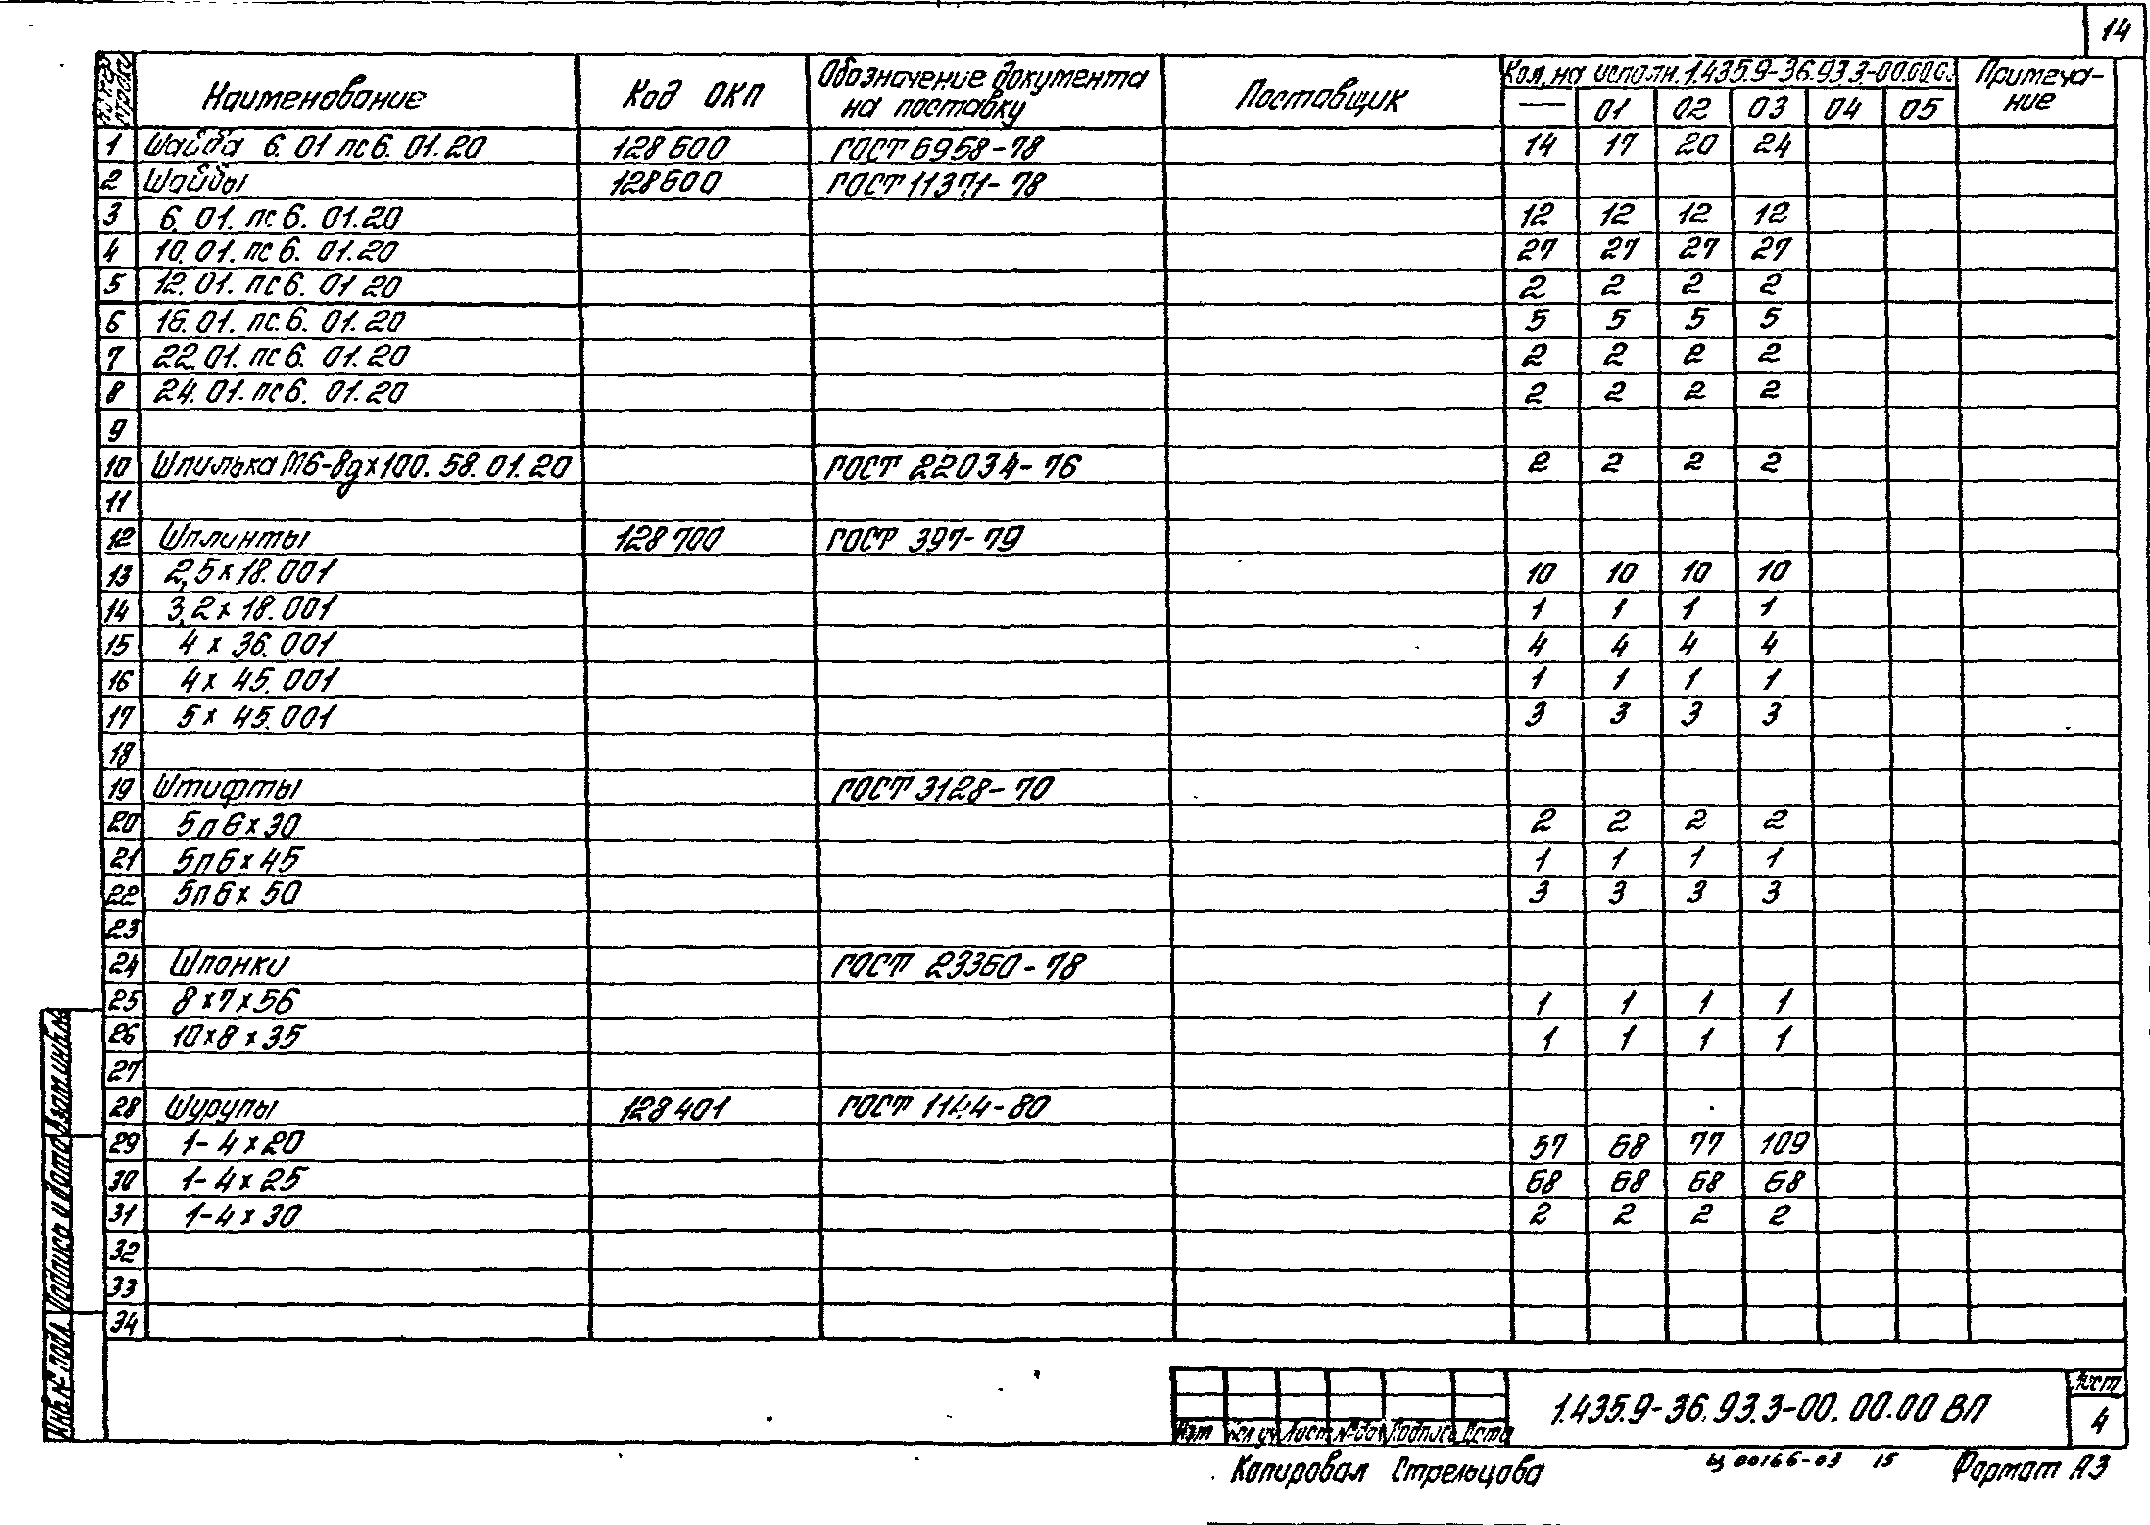 14
Наименование Код ОКП Обозначение документа на поставку Поставщик Кол. на исполн. 1.435.9-36.93.3-00.00.0. Примечание
— 01 02 03 04 05
1 Шайба 6.01 пс 6. 01.20 128600 ГОСТ 6958-78 14 17 20 24
2 Шайбы 128600 ГОСТ 11371-78
3 6.01. пс 6. 01.20 12 12 12 12
4 10.01. пс 6. 01.20 27 27 27 27
5 12.01. пс 6. 01 20 2 2 2 2
6 16.01. пс. 6. 01.20 5 5 5 5
7 22.01. пс 6. 01.20 2 2 2 2
8 24.01. пс 6. 01.20 2 2 2 2
9
10 Шпилька М6-8g×100. 58. 01. 20 ГОСТ 22034-76 2 2 2 2
11
12 Шплинты 128700 ГОСТ 397-79
13 2,5×18.001 10 10 10 10
14 3,2×18.001 1 1 1 1
15 4 × 36.001 4 4 4 4
16 4× 45.001 1 1 1 1
17 5× 45.001 3 3 3 3
18
19 Штифты ГОСТ 3128-70
20 5п6×30 2 2 2 2
21 5п6×45 1 1 1 1
22 5п6×50 3 3 3 3
23
24 Шпонки ГОСТ 23360-78
25 8×7×56 1 1 1 1
26 10×8×35 1 1 1 1
27
28 Шурупы 128401 ГОСТ 1144-80
29 1-4×20 57 68 77 109
30 1-4×25 68 68 68 68
31 1-4×30 2 2 2 2
32
33
34
Инв. № подл. Подпись и дата Взам. инв. №
Изм Кол.уч Лист №док Подпись Дата
1.435.9-36.93.3-00.00.00 ВП
Лист
4
Копировал Стрельцова Ц 00166-03 15 Формат А3